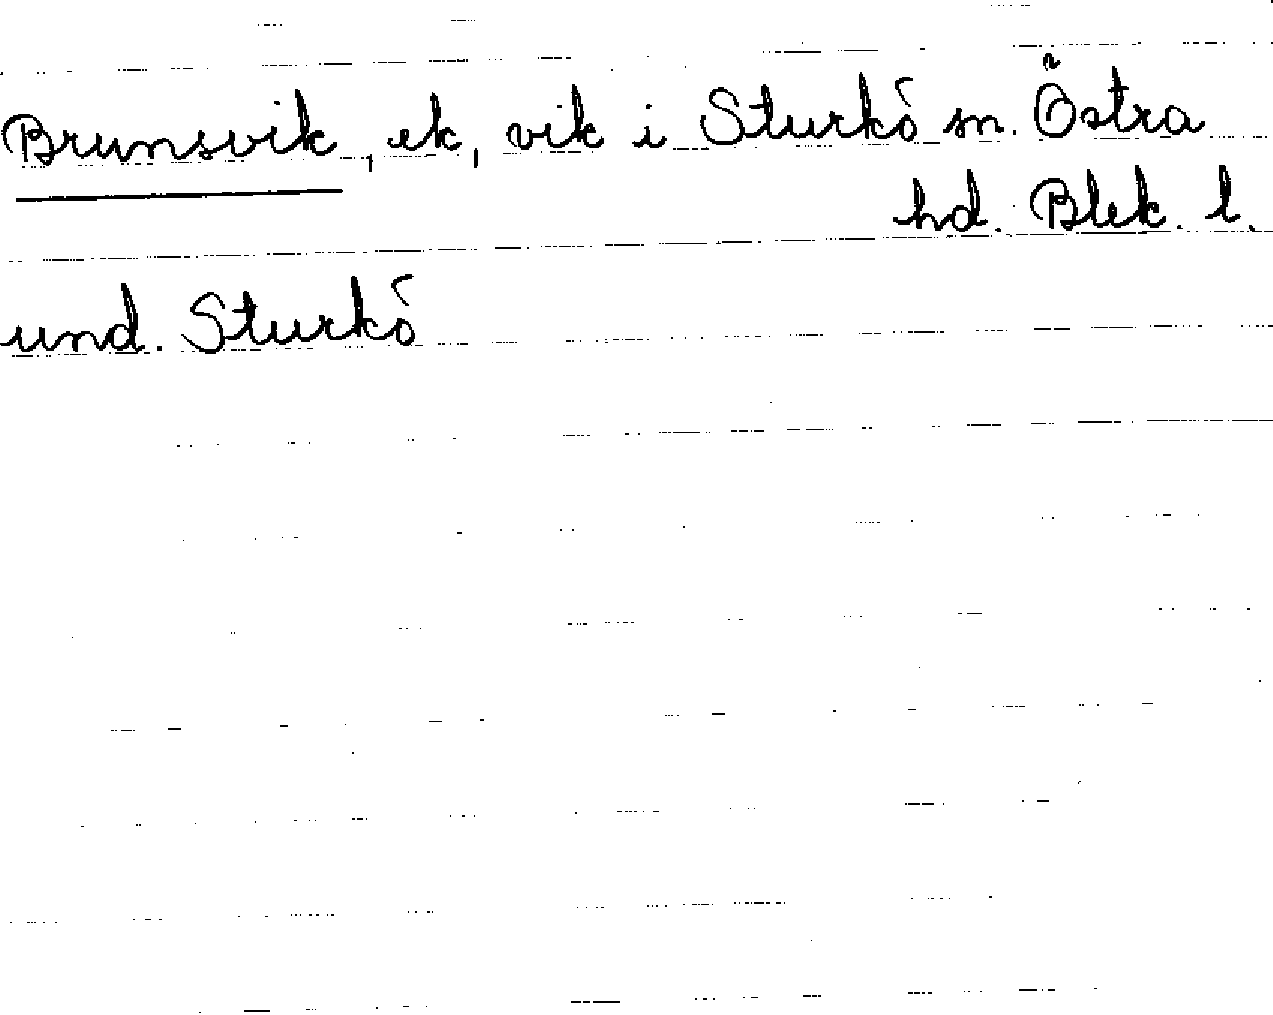 Brunsvik, ek, vik i Sturkö sn. Östra
hd. Blek. l.
und. Sturkö